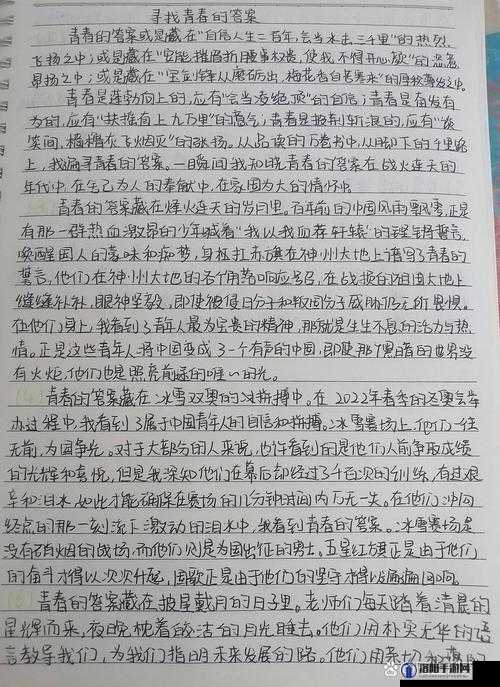 寻找青春的答案
青春的答案或是藏在“自信人生二百年,会当水击三千里”的热烈
飞扬之中;或是藏在“安能摧眉折腰事权贵,使我不得开心颜”的恣意
昂扬之中;或是藏在“宝剑锋从磨砺出,梅花香自苦寒来”的厚积薄发之中。
青春是蓬勃向上的,应有“会当凌绝顶”的自信;青春是奋发有
为的,应有“扶摇直上九万里”的豪气;青春是披荆斩浪的,应有“谈
笑间,樯橹灰飞烟灭”的张扬。从品读的万卷书中,从脚下的千里路
上,我遍寻青春的答案。一瞬间我知晓青春的答案在战火连天的
年代中,在生己为人的奉献中,在家国为大的情怀中
青春的答案藏在烽火连天的岁月里。百年前的中国风雨飘零,正是
有那一群热血激昂的少年喊着“我以我血荐轩辕”的铿锵誓言,
唤醒国人的意味和痴梦,身在红旗在神州大地上谱写了青春的
誓言,他们在神州大地的各个角落响应号召,在战损的祖国大地上
缝缝补补,眼神坚毅,即使被侵日分子和叛国分子威胁仍无所畏惧。
在他们身上,我看到了青年人最为宝贵的精神,那就是生生不息的活力与热
情。正是这些青年人将中国变成了一个有声的中国,即便那个黑暗的世界没
有火炬,他们也是照亮前途的唯一的光。
青春的答案藏在冰雪双奥的对拼搏中。在2022年春季的冬奥会举
办过程中,我看到了属于中国青年人的自信和拼搏。冰雪赛场上,他们一往
无前,为国争光。对于大部分的人来说,也许看到的是他们人前争取成绩
的光辉和喜悦,但是我深知他们在幕后却经过了千百次的训练,有过艰
辛和泪水,如此才能确保在赛场的几分钟时间内万无一失。在他们冲向
终点的那一刻流下激动的泪水中,我看到青春的答案。冰雪赛场是
没有硝烟的战场,而他们则是为国出征的勇士,五星红旗正是由于他们
的奋斗才得以次次升起,国歌正是由于他们的坚守才得以遍遍回响。
青春的答案藏在披星戴月的日子里。老师们每天踏着清晨的
星辉而来,夜晚枕着皎洁的月光睡去。他们用朴实无华的语
言教导我们,为我们指明未来发展的路。他们用亲切
洛阳手游网